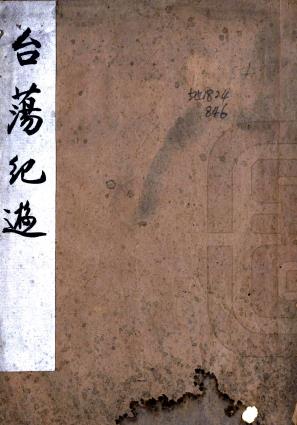 台蕩纪遊
地1824
846